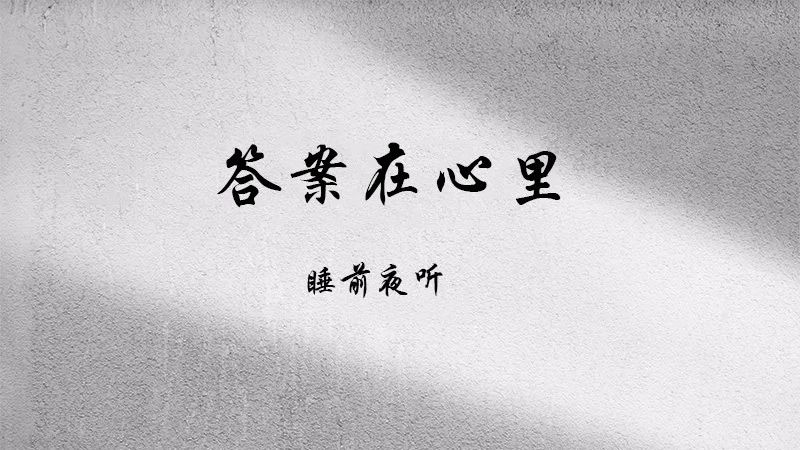 答案在心里
睡前夜听